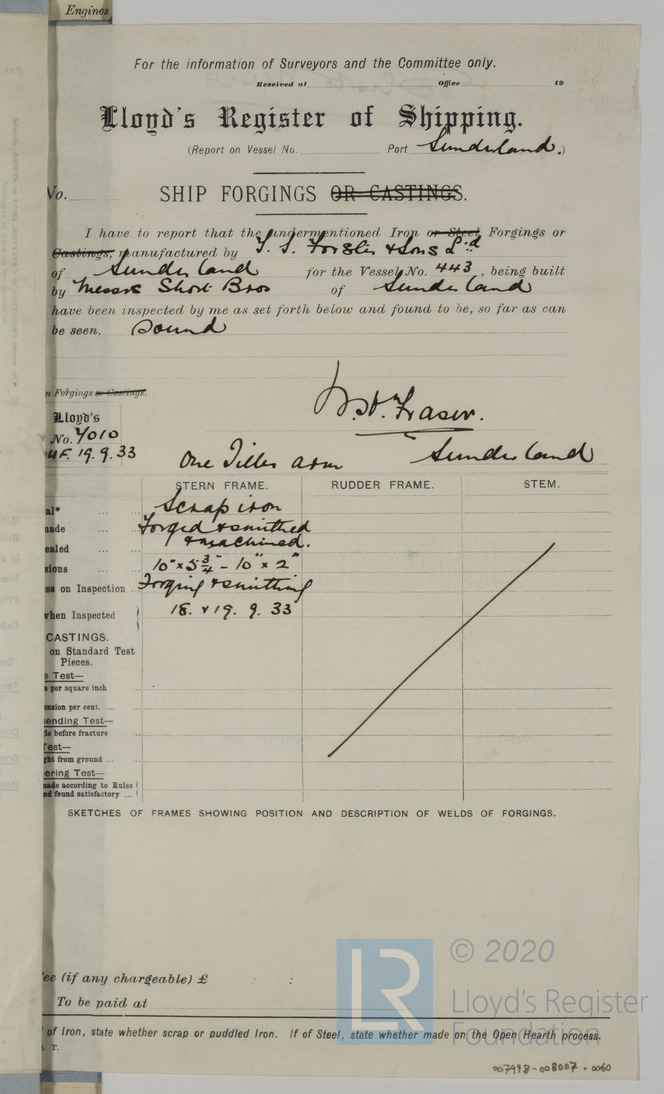 Engines
For the information of Surveyors and the Committee only.
Received at Office 19
Lloyd's Register of Shipping.
(Report on Vessel No. Port Sunderland.)
No.
SHIP FORGINGS OR CASTINGS.
I have to report that the undermentioned Iron or Steel Forgings or
Castings, manufactured by T. S. Forster & Sons Ld
of Sunderland for the Vessel, No. 443, being built
by Messrs Short Bros of Sunderland
have been inspected by me as set forth below and found to be, so far as can
be seen, sound
n Forgings or Castings.
Fraser.
Lloyd's
No. 4010
F. 19.9.33
One Tiller arm Sunderland
STERN FRAME. RUDDER FRAME. STEM.
al* Scrap iron
ade Forged & smithed
& machined.
ealed
sions 10" x 5 3/4" - 10" x 2"
ss on Inspection Forging & smithing
when Inspected 18. & 19. 9. 33
CASTINGS.
on Standard Test
Pieces.
e Test—
s per square inch
ension per cent.
ending Test—
le before fracture
Test—
ght from ground
ering Test—
ade according to Rules
nd found satisfactory
SKETCHES OF FRAMES SHOWING POSITION AND DESCRIPTION OF WELDS OF FORGINGS.
ee (if any chargeable) £ :
To be paid at
of Iron, state whether scrap or puddled Iron. If of Steel, state whether made on the Open Hearth process.
T.
LR © 2020
Lloyd's Register
Foundation
007998-008007-0060